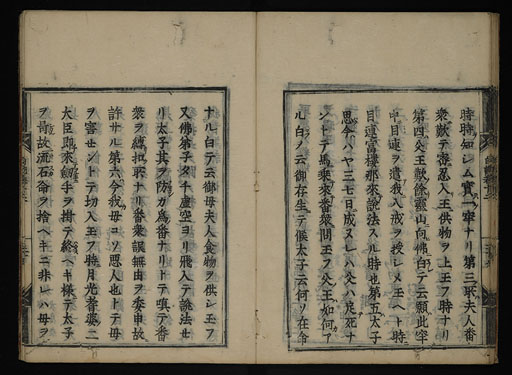 時時知レム實ニ宰ナリ第三耿夫人番
衆歒テ審忍入王供物ヲ上王フ時ナリ
第四父王獣餘靈山向佛白テ云願此宰
中目連ヲ遣我入戒ヲ授レメ玉ヘト時
目連富樓那來說法スル時也第五太子
思今ハヤ三七日成又レハ父ハ定死ナ
ントテ馬乘來番衆問王フ父王如何ア
ル白ノ云御存生テ候太子云何ソ在命
ナル白テ云御母夫人食物ヲ供レ玉フ
又佛弟子タチ虚空ヨリ飛入テ說法セ
リ太子其ヲ防カ為番ナリトテ嗔テ番
衆ヲ縛扣耿ナリ番衆誤無由ヲ委申故
許サル第六今我母コソ惡人也トテ母
ヲ害セントテ切入王フ時月光耆婆二
大臣馳來劔手ヲ掛テ終ヘキ様テ太子
ヲ宥故流石命ヲ捨ヘキニ非レハ母ヲ